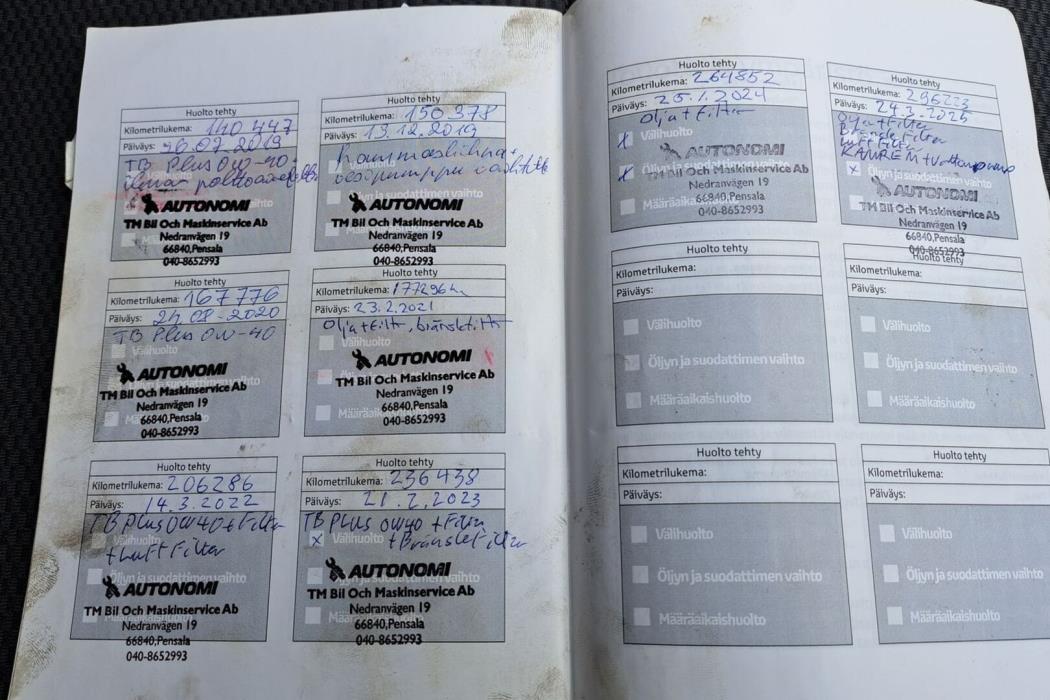 Huolto tehty
Kilometrilukema: 140 447
Päiväys: 26.02.2019
TB Plus 0W-40.
ilman
AUTONOMI
TM Bil Och Maskinservice Ab
Nedranvägen 19
66840,Pensala
040-8652993
Huolto tehty
Kilometrilukema: 150 378
Päiväys: 13.12.2019
AUTONOMI
TM Bil Och Maskinservice Ab
Nedranvägen 19
66840,Pensala
040-8652993
Huolto tehty
Kilometrilukema: 167 776
Päiväys: 24.08-2020
TB Plus 0W-40
Välihuolto
AUTONOMI
TM Bil Och Maskinservice Ab
Nedranvägen 19
66840,Pensala
040-8652993
Huolto tehty
Kilometrilukema: 177296 km
Päiväys: 23.2.2021
Olja + Filt
Välihuolto
AUTONOMI
TM Bil Och Maskinservice Ab
Nedranvägen 19
66840,Pensala
040-8652993
Huolto tehty
Kilometrilukema: 206286
Päiväys: 14.3.2022
TB Plus 0W40 + Filter
+ Luft Filter
Öljyn ja suodattimen vaihto
AUTONOMI
TM Bil Och Maskinservice Ab
Nedranvägen 19
66840,Pensala
040-8652993
Huolto tehty
Kilometrilukema: 236 438
Päiväys: 21.2.2023
TB Plus 0W40 + Filter
x Välihuolto + Bränsle Filter
AUTONOMI
TM Bil Och Maskinservice Ab
Nedranvägen 19
66840,Pensala
040-8652993
Huolto tehty
Kilometrilukema: 264852
Päiväys: 25.1.2024
Olja + Filter
x Välihuolto
AUTONOMI
x TM Bil Och Maskinservice Ab
Nedranvägen 19
66840,Pensala
040-8652993
Huolto tehty
Kilometrilukema: 296223
Päiväys: 24.3.2025
Olja + Filter
Bränsle Filter
Luft Filter
KAMREM + Vattenpump
x Öljyn ja suodattimen vaihto
AUTONOMI
TM Bil Och Maskinservice Ab
Nedranvägen 19
66840,Pensala
040-8652993
Huolto tehty
Kilometrilukema:
Päiväys:
Välihuolto
Öljyn ja suodattimen vaihto
Määräaikaishuolto
Huolto tehty
Kilometrilukema:
Päiväys:
Välihuolto
Öljyn ja suodattimen vaihto
Määräaikaishuolto
Huolto tehty
Kilometrilukema:
Päiväys:
Välihuolto
Öljyn ja suodattimen vaihto
Määräaikaishuolto
Huolto tehty
Kilometrilukema:
Päiväys:
Välihuolto
Öljyn ja suodattimen vaihto
Määräaikaishuolto